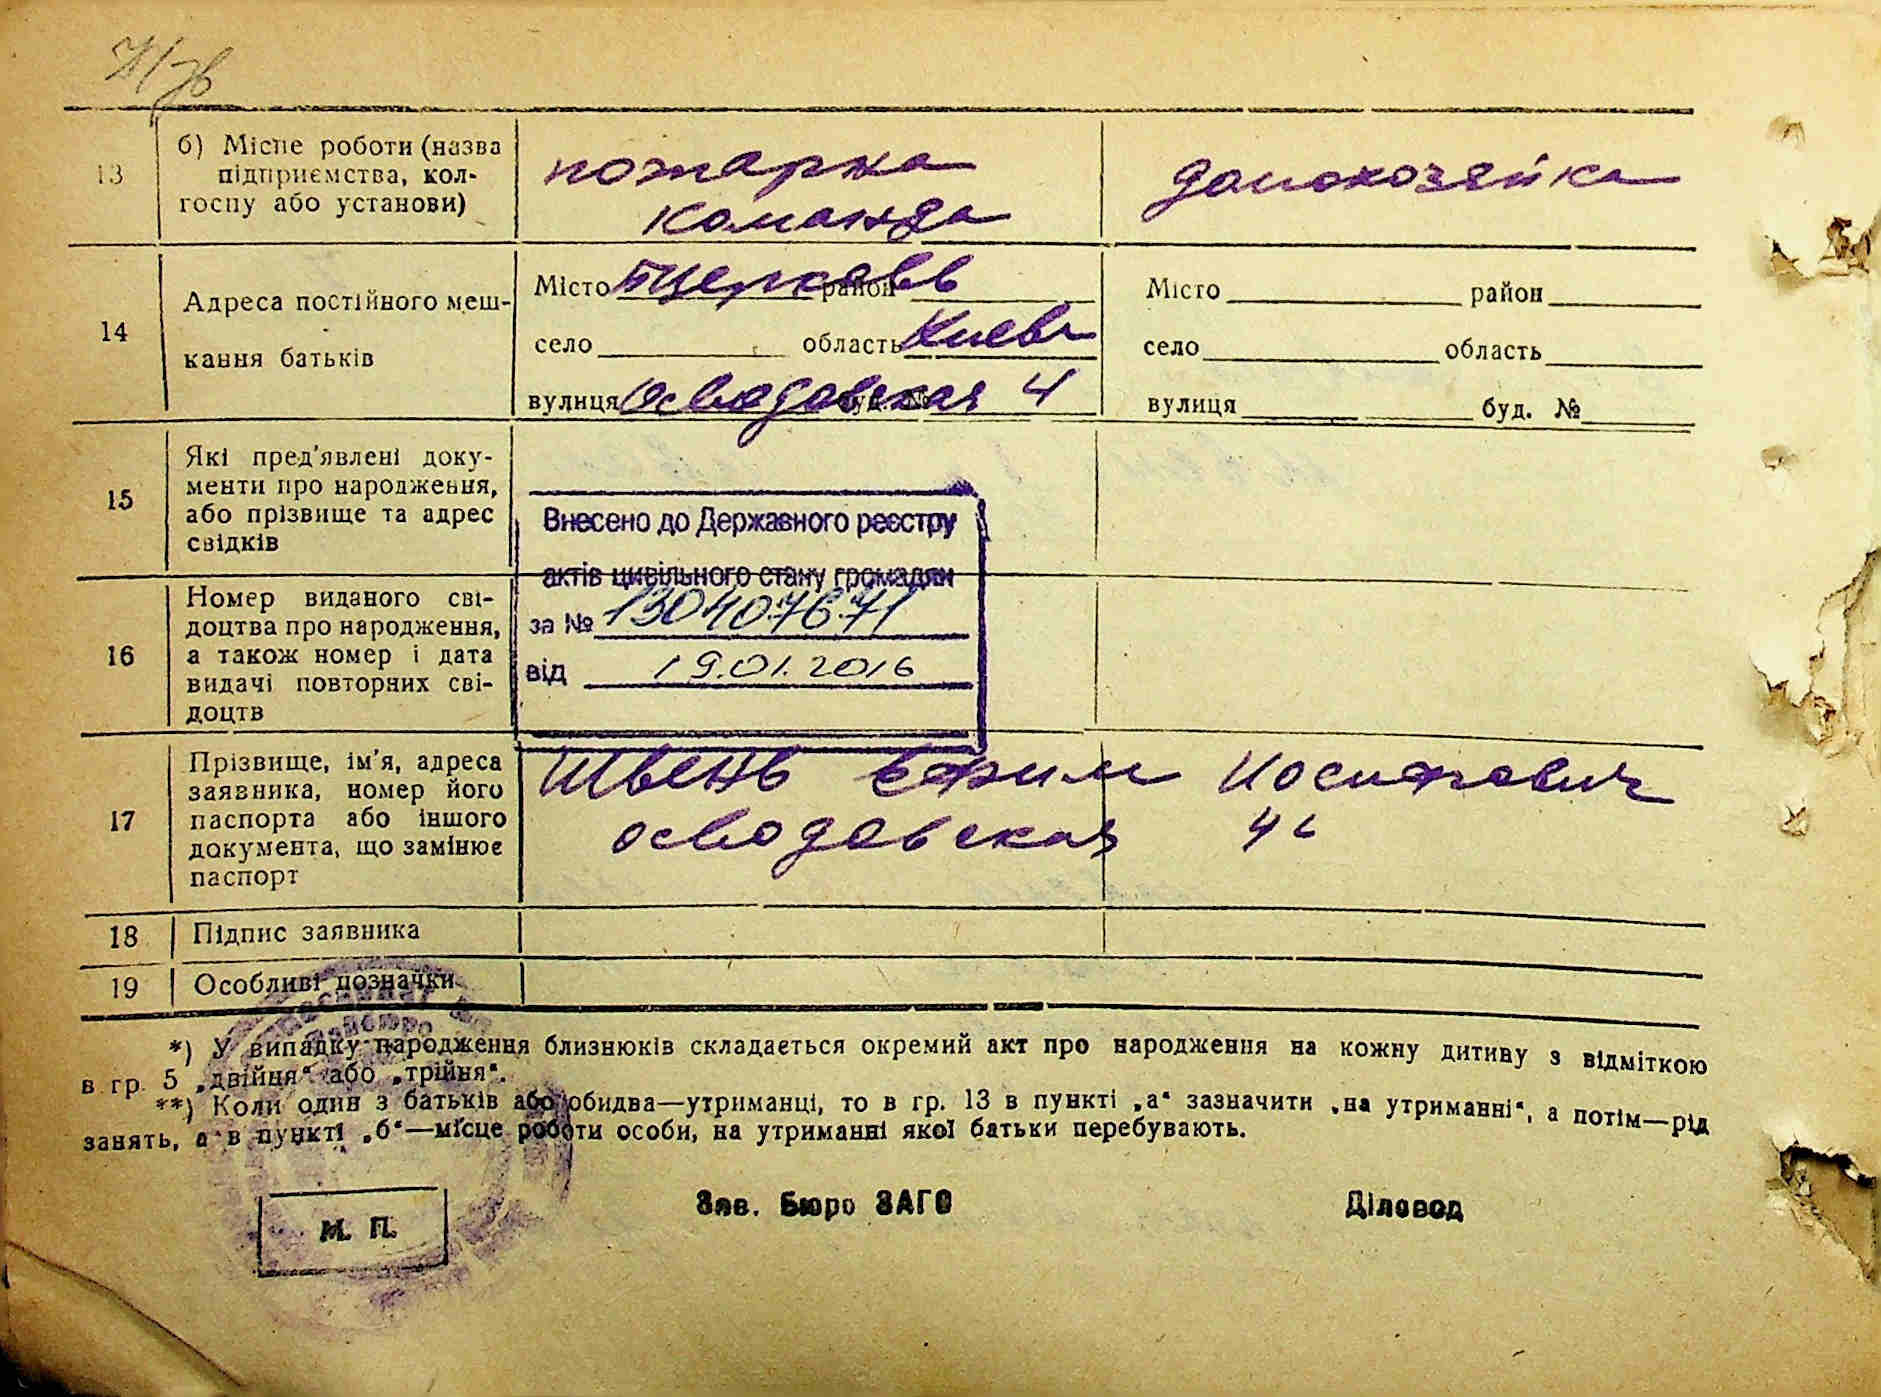 13 б) Місце роботи (назва підприємства, колгоспу або установи)
пожарка команда
домохозяйка
14 Адреса постійного мешкання батьків
Місто Бцерковь район
село область Киевс
вулиця буд. № 4
Місто район
село область
вулиця буд. №
15 Які пред'явлені документи про народження, або прізвище та адрес свідків
Внесено до Державного реєстру
актів цивільного стану громадян
за № 130407671
від 19.01.2016
16 Номер виданого свідоцтва про народження, а також номер і дата видачі повторних свідоцтв
17 Прізвище, ім'я, адреса заявника, номер його паспорта або іншого документа, що замінює паспорт
Швень Ефим Иосифович
18 Підпис заявника
19 Особливі позначки
*) У випадку народження близнюків складається окремий акт про народження на кожну дитину з відміткою
в гр. 5 „двійня“ або „трійня“.
**) Коли один з батьків або обидва—утриманці, то в гр. 13 в пункті „а“ зазначити „на утриманні“, а потім—рід
занять, а в пункті „б“—місце роботи особи, на утриманні якої батьки перебувають.
Зав. Бюро ЗАГС
Діловод
М. П.